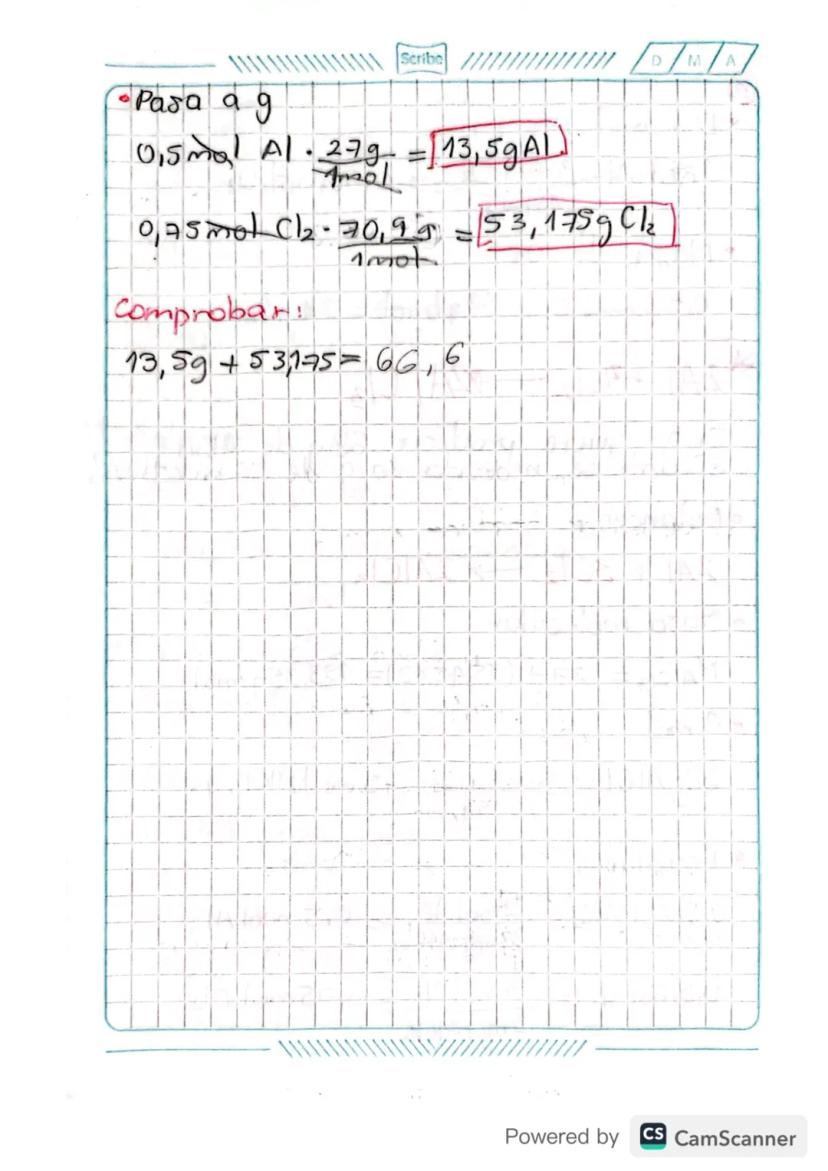 Scribe
D M A
• Pasa a g
0,5 mol Al · 27g / 1mol = 13,5g Al
0,75 mol Cl₂ · 70,9 g / 1mol = 53,175g Cl₂
Comprobar:
13,5g + 53,175 = 66,6
Powered by CS CamScanner